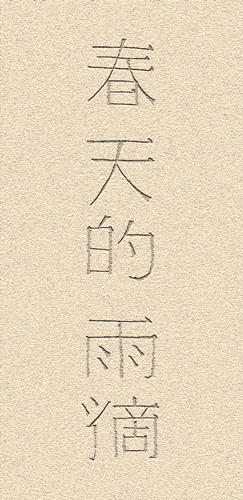 春天的雨滴